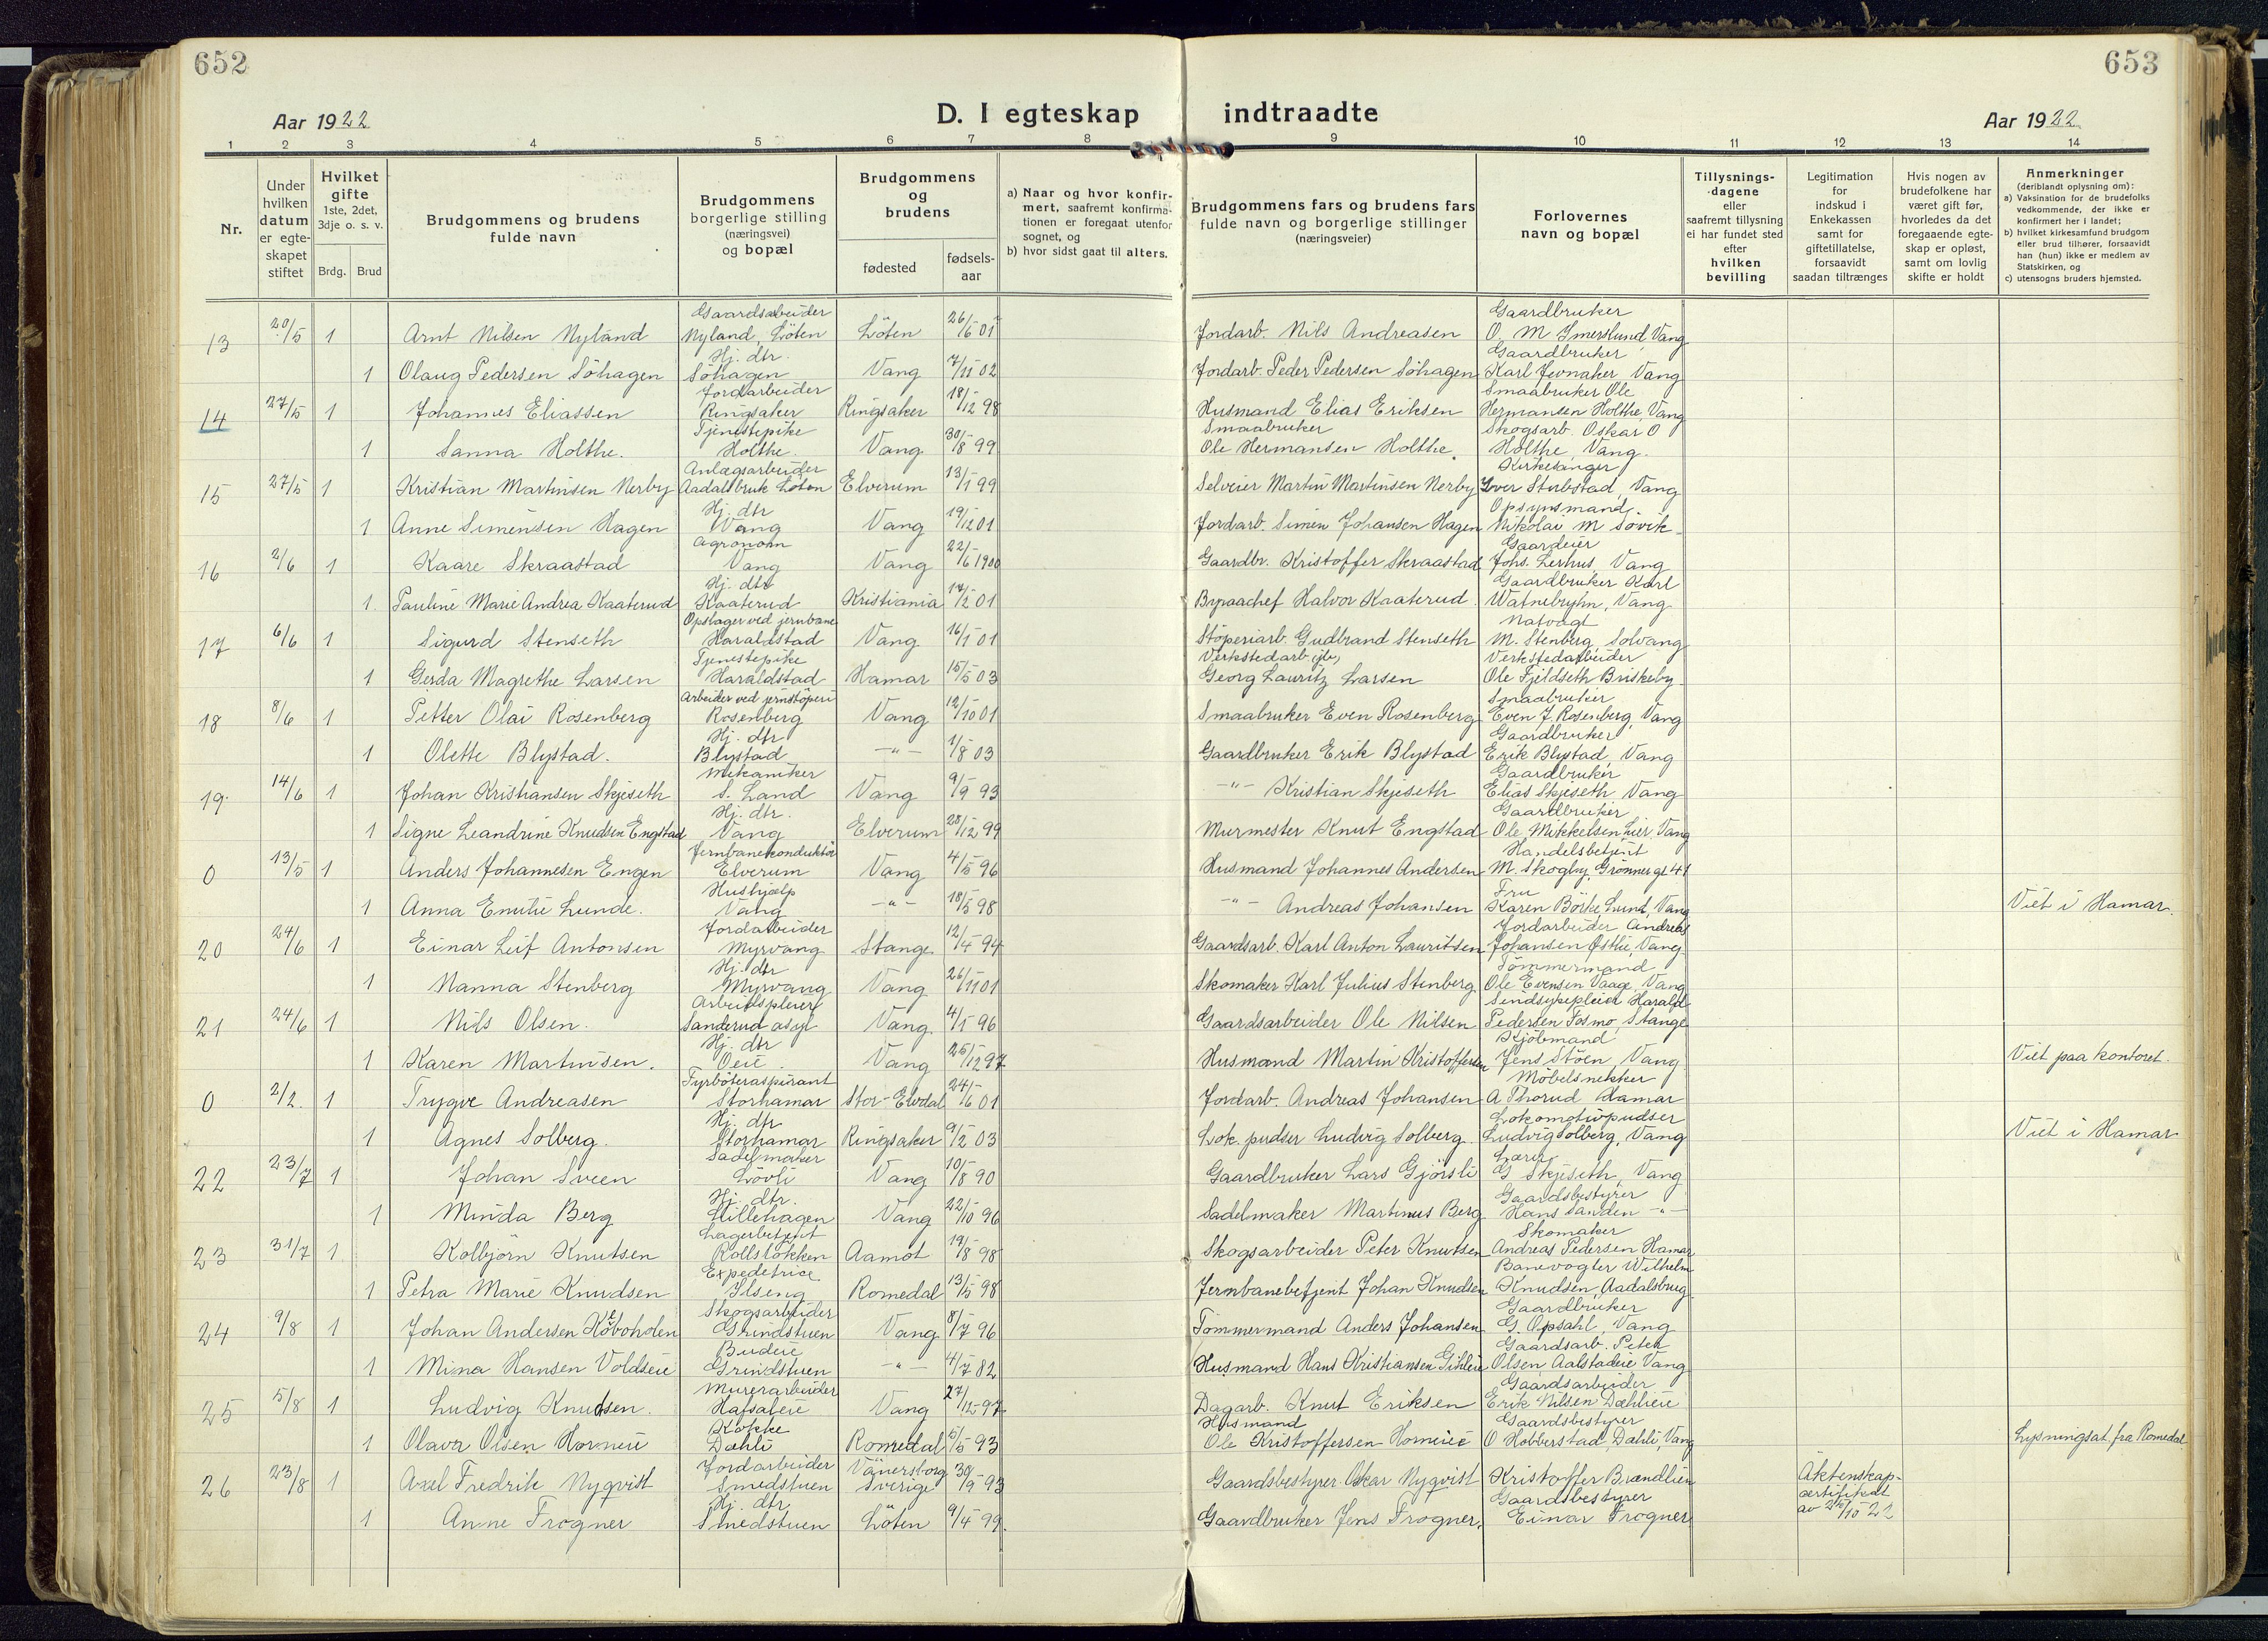 652
653
Aar 1922
D. I egteskap indtraadte
Aar 1922
1 2 3 4 5 6 7 8 9 10 11 12 13 14
Nr.
Under hvilken datum er egteskapet stiftet
Hvilket gifte 1ste, 2det, 3dje o. s. v.
Brdg. Brud
Brudgommens og brudens fulde navn
Brudgommens borgerlige stilling (næringsvei) og bopæl
Brudgommens og brudens
fødested
fødsels-aar
a) Naar og hvor konfirmert, saafremt konfirmationen er foregaat utenfor sognet, og
b) hvor sidst gaat til alters.
Brudgommens fars og brudens fars fulde navn og borgerlige stillinger (næringsveier)
Forlovernes navn og bopæl
Tillysnings-dagene eller saafremt tillysning ei har fundet sted efter hvilken bevilling
Legitimation for indskud i Enkekassen samt for giftetillatelse, forsaavidt saadan tiltrænges
Hvis nogen av brudefolkene har været gift før, hvorledes da det foregaaende egteskap er opløst, samt om lovlig skifte er holdt
Anmerkninger (deriblandt oplysning om):
a) Vaksination for de brudefolks vedkommende, der ikke er konfirmert her i landet;
b) hvilket kirkesamfund brudgom eller brud tilhører, forsaavidt han (hun) ikke er medlem av Statskirken, og
c) utensogns bruders hjemsted.
13 20/5 1 Arnt Nilsen Nyland Gaardsarbeider Nyland, Löten Löten 26/6 01 Jordarb. Nils Andreasen Gaardbruker O. M Imerslund, Vang
1 Olaug Pedersen Söhagen Hj. dtr. Söhagen Vang 7/11 02 Jordarb. Peder Pedersen Söhagen Gaardbruker Karl Jevnaker Vang
14 27/5 1 Johannes Eliassen Jordarbeider Ringsaker Ringsaker 18/12 98 Husmand Elias Eriksen Smaabruker Ole Hermansen Holthe, Vang
1 Sanna Holthe. Tjenestepike Holthe. Vang 30/8 99 Smaabruker Ole Hermansen Holthe. Skogsarb. Oskar O Holthe, Vang.
15 27/5 1 Kristian Martinsen Nerby Anlægsarbeider Aadalsbruk Löten Elverum 13/1 99 Selveier Martin Martinsen Nerby Kirkesanger Iver Stubstad, Vang
1 Anne Simensen Hagen Hj. dtr Vang Vang 19/12 01 Jordarb. Simen Johansen Hagen Opsynsmand Nikolai M Sövik
16 2/6 1 Kaare Skraastad Agronom Vang Vang 22/6 1900 Gaardbr. Kristoffer Skraastad Gaardeier Johs. Lerhus, Vang
1. Pauline Marie Andrea Kaaterud Hj. dtr Kaaterud Kristiania 17/2 01 Byraachef Halvor Kaaterud. Gaardbruker Karl Watnebryn, Vang
17 6/6 1 Sigurd Stenseth Opslager ved jernbane Haraldstad Vang 16/1 01 Stöperiarb. Gudbrand Stenseth Natvagt M. Stenberg, Solvang
1 Gerda Magrethe Larsen Tjenestepike Haraldstad Hamar 15/5 03 Verkstedarb. Georg Lauritz Larsen Verkstedarbeider Ole Fjeldseth Briskeby
18 8/6 1 Petter Olai Rosenberg Arbeider ved jernstöperi Rosenberg Vang 12/10 01 Smaabruker Even Rosenberg Smaabruker Even J. Rosenberg, Vang
1 Olette Blystad. Hj. dtr Blystad -"- 1/8 03 Gaardbruker Erik Blystad Gaardbruker Erik Blystad, Vang
19. 14/6 1 Johan Kristiansen Skjeseth Mekaniker S. Land Vang 9/9 93 -"- Kristian Skjeseth Gaardbruker Elias Skjeseth, Vang
1 Signe Leandrine Knudsen Engstad Hj. dtr. Vang Elverum 28/12 99 Murmester Knut Engstad Gaardbruker Ole Mikkelsen Lier, Vang
0 13/5 1 Anders Johannesen Engen Jernbanekonduktör Elverum Vang 4/5 96 Husmand Johannes Andersen Handelsbetjent M. Skogby, Grönnegt 41
1 Anna Emilie Lunde. Hushjælp Vang -"- 18/5 98 -"- Andreas Johansen Fru Karen Börke Lund, Vang Viet i Hamar.
20 24/6 1 Einar Leif Antonsen Jordarbeider Myrvang Stange 12/4 94 Gaardsarb. Karl Anton Lauritsen Jordarbeider Andreas Johansen Østlie, Vang.
1 Nanna Stenberg Hj. dtr Myrvang Vang 26/11 01 Skomaker Karl Julius Stenberg Tömmermand Ole Evensen Vaage, Vang
21 24/6 1 Nils Olsen. Arbeidspleier Sanderud asyl Vang. 4/1 96 Gaardsarbeider Ole Nilsen Sindsykepleier Harald Pedersen Fosmo, Stange
1 Karen Martinsen. Hj. dtr Oeie Vang 25/12 97 Husmand Martin Kristoffersen Kjöbmand Jens Stöen, Vang Viet paa kontoret.
0 2/2. 1 Trygve Andreasen Fyrböteraspirant Storhamar Stor-Elvdal 24/6 01 Jordarb. Andreas Johansen Möbelsnekker A Thorud Hamar
1 Agnes Solberg. Hj. dtr Storhamar Ringsaker 9/2 03 Lok. pudser Ludvig Solberg. Lokomotivpudser Ludvig Solberg, Vang Viet i Hamar
22 23/7 1 Johan Sveen Sadelmaker Lövli Vang 10/8 90 Gaardbruker Lars Gjörsli Lærer G Skjeseth, Vang
1 Minda Berg Hj. dtr. Lillehagen Vang 22/10 96 Sadelmaker Martinus Berg Gaardsbestyrer Hans Sanden -"-
23 31/7 1 Kolbjörn Knutsen Lagerbetjent Rollslökken Aamot 19/8 98 Skogsarbeider Peter Knutsen Skomaker Andreas Pedersen Hamar
1 Petra Marie Knudsen Expeditrice Ilseng Romedal 13/5 98 Jernbanebetjent Johan Knudsen Banevogter Wilhelm Knudsen, Aadalsbrug
24 9/8 1 Johan Andersen Skogsarbeider Grindstuen Vang 8/7 96 Tömmermand Anders Johansen Gaardbruker G. Opsahl, Vang
1 Mina Hansen Voldseie Budeie Grindstuen -"- 4/7 82 Husmand Hans Kristiansen Gaardsarb. Peter Olsen, Aalstadeie Vang
25 5/8 1 Ludvig Knudsen. Murerarbeider Hafsaleie Vang 27/12 97 Dagarb. Knut Eriksen Gaardsarbeider Erik Nilsen Dæhlieie
1 Olava Olsen Horneie Kokke Dæhli Romedal 5/5 93 Husmand Ole Kristoffersen Horneie Gaardsbestyrer O Hobberstad, Dæhli, Vang Lysningsat. fra Romedal
26 23/8 1 Axel Fredrik Nyqvist Jordarbeider Smedstuen Vänersborg Sverige 30/9 93 Gaardsbestyrer Oskar Nyqvist Kristoffer Brændlien Äktenskapcertifikat av 10 22
1 Anne Frogner Hj. dtr Smedstuen Löten 9/4 99. Gaardbruker Jens Frogner. Gaardsbestyrer Einar Frogner